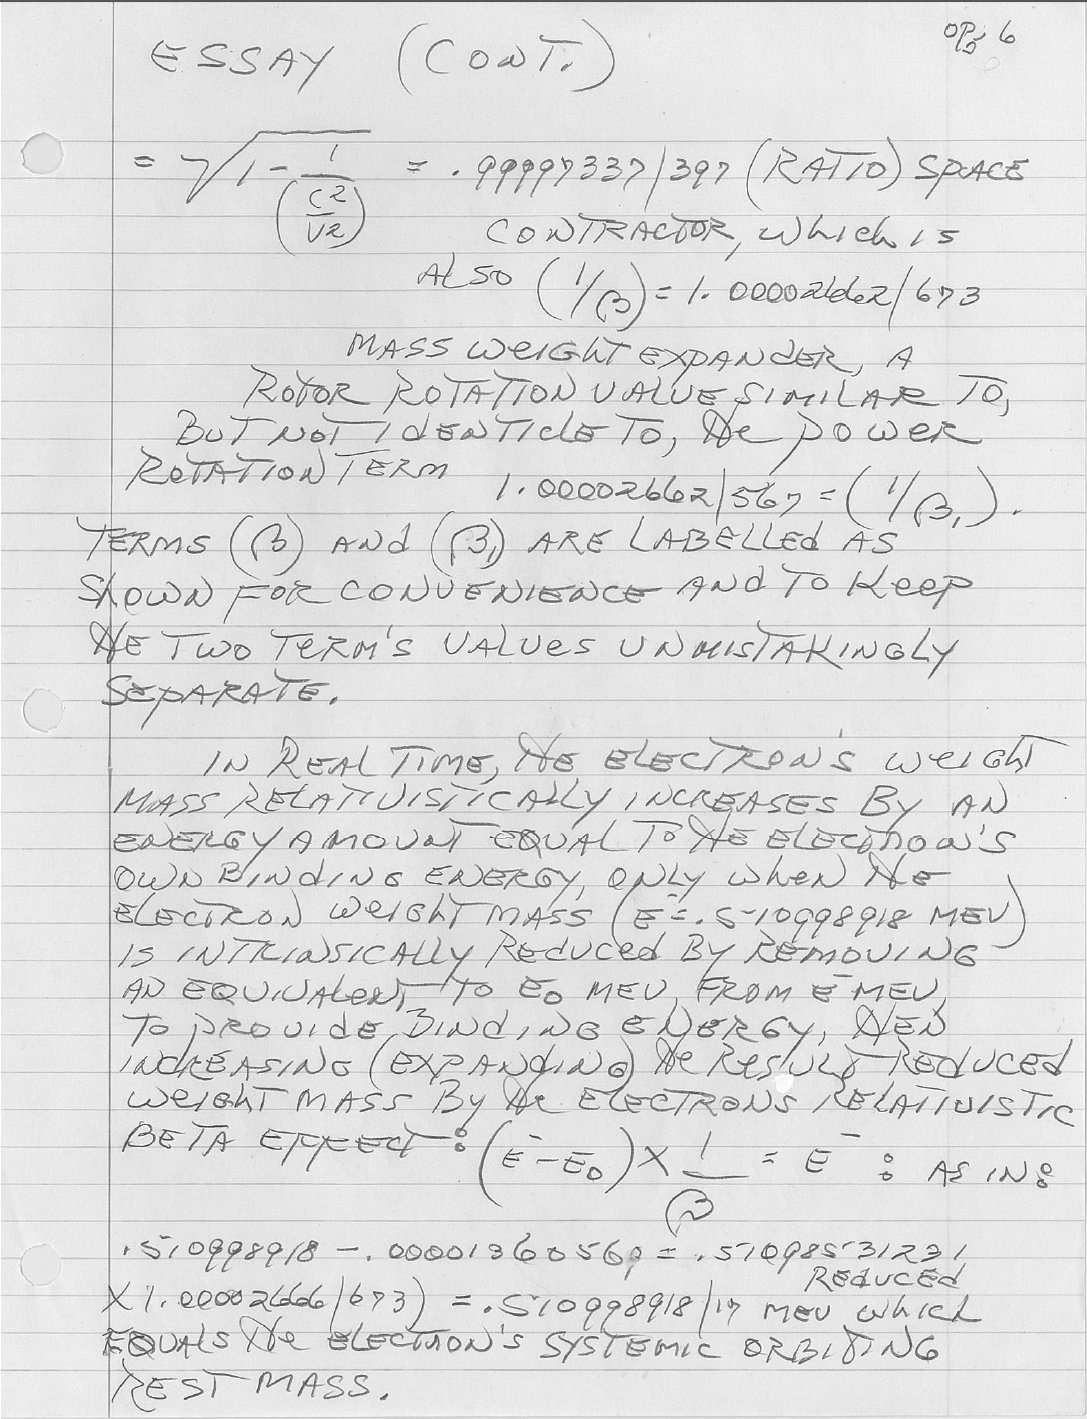 ESSAY (CONT.)
op. 6
= √1 - 1/(C2/V2) = .99997337/397 (RATIO) SPACE
CONTRACTOR, which is
ALSO (1/β) = 1.00002662/673
MASS WEIGHT EXPANDER, A
ROTOR ROTATION VALUE SIMILAR TO,
BUT NOT IDENTICLE TO, the POWER
ROTATION TERM
1.00002662/567 = (1/β₁).
TERMS (β) AND (β₁) ARE LABELLED AS
SHOWN FOR CONVENIENCE AND TO KEEP
THE TWO TERM'S VALUES UNMISTAKINGLY
SEPARATE.
IN REAL TIME, THE ELECTRON'S WEIGHT
MASS RELATIVISTICALLY INCREASES BY AN
ENERGY AMOUNT EQUAL TO THE ELECTRON'S
OWN BINDING ENERGY, ONLY WHEN THE
ELECTRON WEIGHT MASS (E⁻=.510998918 MEV)
IS INTRINSICALLY REDUCED BY REMOVING
AN EQUIVALENT TO E₀ MEV, FROM E⁻ MEV,
TO PROVIDE BINDING ENERGY, THEN
INCREASING (EXPANDING) the RESULT REDUCED
WEIGHT MASS BY the ELECTRONS RELATIVISTIC
BETA EFFECT: (E⁻-E₀) X 1/β = E⁻ : AS IN:
.510998918 - .000013605691 = .51098531231
REDUCED
X 1.00002666/673) = .510998918/17 MEV which
EQUALS the ELECTRON'S SYSTEMIC ORBITING
REST MASS.